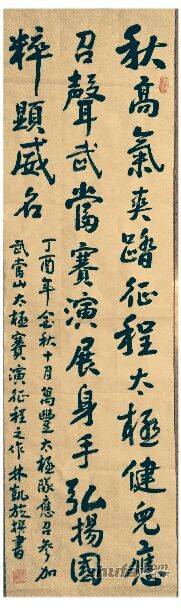 秋高氣爽踏征程太極健兒應
召聲武當賽演展身手弘揚國
粹顯威名
丁酉年金秋十月萬豐太極隊應召參加
武當山太極賽演征程之作林凱於撰書